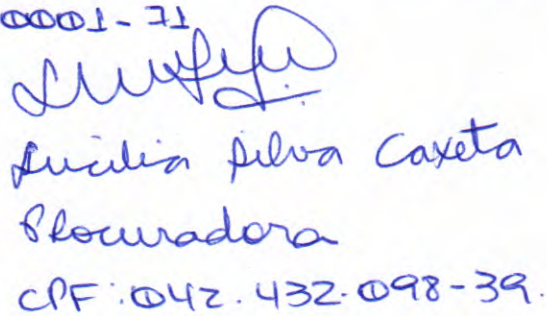 0001-71
Lucilia Silva Caxeta
Procuradora
CPF: 042.432.098-39.